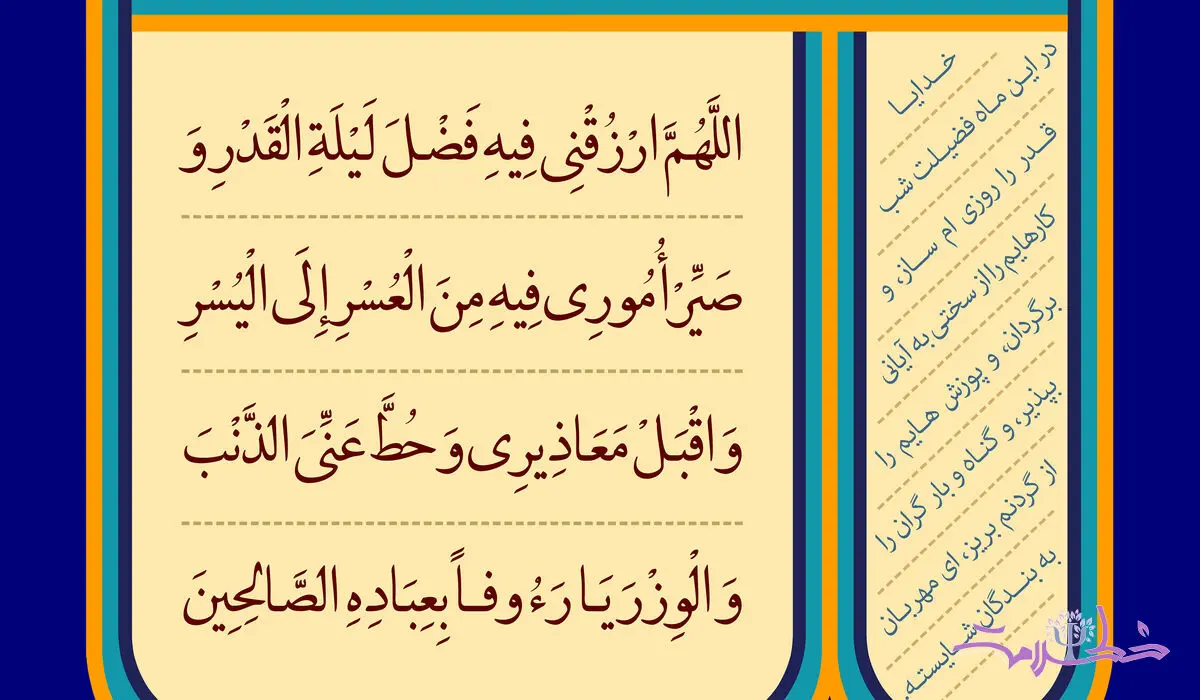 اللَّهُمَّ ارْزُقْنِی فِیهِ فَضْلَ لَیْلَةِ الْقَدْرِ وَ
صَیِّرْ أُمُورِی فِیهِ مِنَ الْعُسْرِ إِلَی الْیُسْرِ
وَ اقْبَلْ مَعَاذِیرِی وَ حُطَّ عَنِّیَ الذَّنْبَ
وَ الْوِزْرَ یَا رَءُوفاً بِعِبَادِهِ الصَّالِحِینَ
خدایا
در این ماه فضیلت شب
قدر را روزی ام ساز، و
کارهایم را از سختی به آیانی
برگردان، و پوزش هایم را
بپذیر، و گناه و بار گران را
از گردنم بریز، ای مهربان
به بندگان شایسته.
خط سلامت